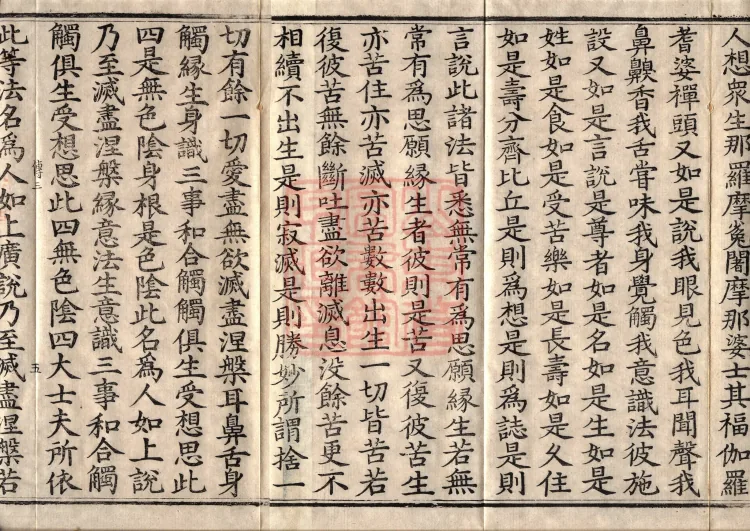 人想眾生那羅摩㝹闍摩那婆士其福伽羅
耆婆禪頭又如是說我眼見色我耳聞聲我
鼻齅香我舌甞味我身覺觸我意識法彼施
設又如是言說是尊者如是名如是生如是
姓如是食如是受苦樂如是長壽如是久住
如是壽分齊比丘是則為想是則為誌是則
言說此諸法皆悉無常有為思願緣生若無
常有為思願緣生者彼則是苦又復彼苦生
亦苦住亦苦滅亦苦數數出生一切皆苦若
復彼苦無餘斷吐盡欲離滅息没餘苦更不
相續不出生是則寂滅是則勝妙所謂捨一
切有餘一切愛盡無欲滅盡涅槃耳鼻舌身
觸緣生身識三事和合觸觸俱生受想思此
四是無色陰身根是色陰此名為人如上說
乃至滅盡涅槃緣意法生意識三事和合觸
觸俱生受想思此四無色陰四大士夫所依
傅三
五
此等法名為人如上廣說乃至滅盡涅槃若